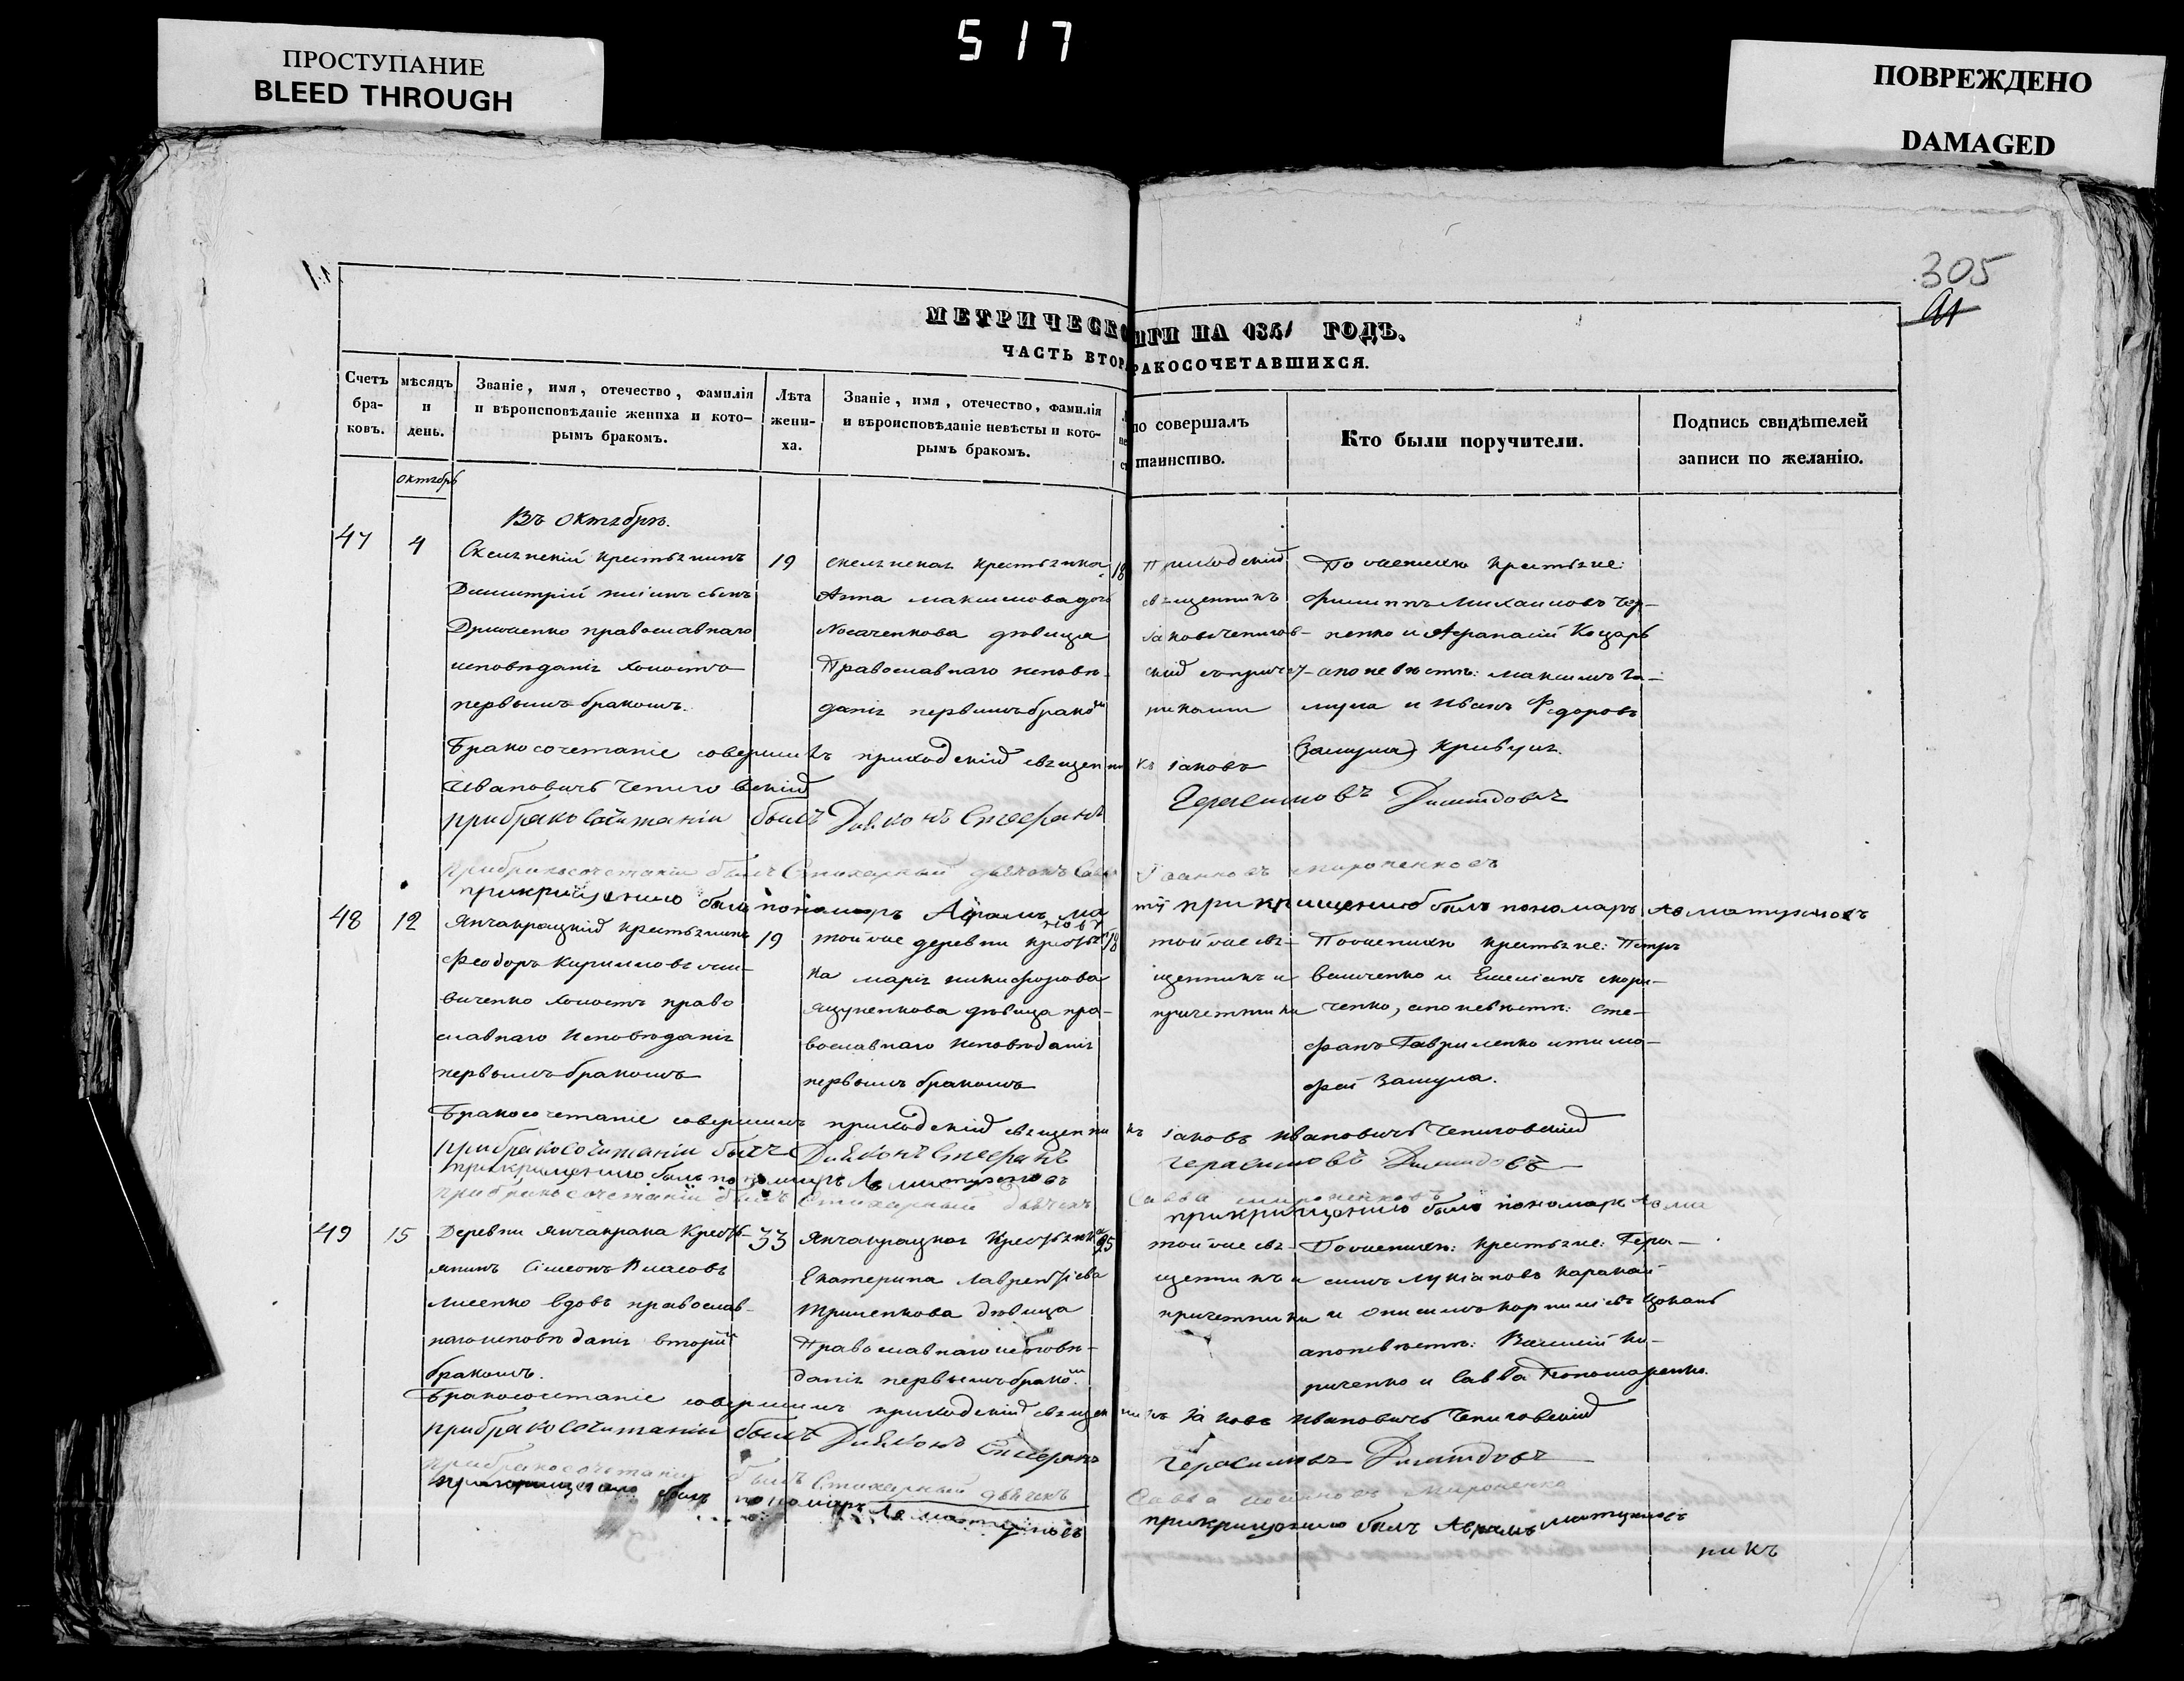 517
ПРОСТУПАНИЕ
BLEED THROUGH
ПОВРЕЖДЕНО
DAMAGED
305
91
МЕТРИЧЕСКО
ИГИ НА 1851 ГОДЪ.
ЧАСТЬ ВТОР
РАКОСОЧЕТАВШИХСЯ.
Счетъ бра-ковъ.
мѣсяцъ и день.
Званіе, имя, отечество, фамилія и вѣроисповѣданіе жениха и кото-рымъ бракомъ.
Лѣта жени-ха.
Званіе, имя, отечество, фамилія и вѣроисповѣданіе невѣсты и кото-рымъ бракомъ.
то совершалъ таинство.
Кто были поручители.
Подпись свидѣтелей записи по желанію.
октябрь
Въ Октябрѣ.
47
4
крестьянинъ
Димитрій
православнаго
исповѣданія холостъ
первымъ бракомъ.
19
крестьянка
Анна Максимова дочь
Носаченкова дѣвица
Православнаго исповѣ-
данія первымъ бракомъ
18
Приходскій
священникъ
Іаковъ Чепигов-
скій съ причет-
никами
По женихѣ крестьяне:
Филиппъ Михаиловъ Чер-
ненко и Афанасій Коцарь
а по невѣстѣ: Максимъ За-
мула и Иванъ Федоровъ
(Замула) Кривуля.
Бракосочетаніе совершилъ приходскій священникъ Іаковъ
Ивановичъ Чепиговскій
при бракосочитаніи былъ Діяконъ Стефанъ Герасимовъ
при бракосочетаніи былъ Стихарный дьячокъ Савва Іоанновъ Мироненковъ
48
12
Янчакрацкій крестьянинъ
Феодоръ Кирилловъ
виченко холостъ право
славнаго исповѣданія
первымъ бракомъ
19
той же деревни крестьян
ка Марія Никифорова
Яцуненкова дѣвица пра-
вославнаго исповѣданія
первымъ бракомъ
18
той же свя-
щенникъ и
причетники
По женихѣ крестьяне: Петръ
Величенко и Емеліанъ Скори-
ченко, а по невѣстѣ: Сте-
фанъ Гавриленко и Тимо-
фей Замула.
Бракосочетаніе совершилъ приходскій священникъ Іаковъ Ивановичъ Чепиговскій
при бракосочитаніи былъ Діяконъ Стефанъ Герасимовъ
при бракосочетаніи былъ Стихарный дьячекъ Савва
49
15
Деревни Янчакрака Кресть-
янинъ Сімеонъ Власовъ
Лисенко вдовъ православ-
наго исповѣданія вторымъ
бракомъ.
33
Янчакрацкая Крестьянка
Екатерина Лаврентіева
Триленкова дѣвица
Православнаго исповѣ-
данія первымъ бракомъ
25
той же свя-
щенникъ и
причетники
По женихѣ: крестьяне: Гера-
симъ Лукіановъ
и Онисимъ Корниліевъ
а по невѣстѣ: Василій Ки-
риченко и Савва Пономаренко.
Бракосочетаніе совершилъ приходскій священникъ Іаковъ Ивановичъ Чепиговскій
при бракосочитаніи былъ Діяконъ Стефанъ Герасимовъ
при бракосочетаніи былъ Стихарный дьячекъ Савва Іоанновъ Мироненко
никъ